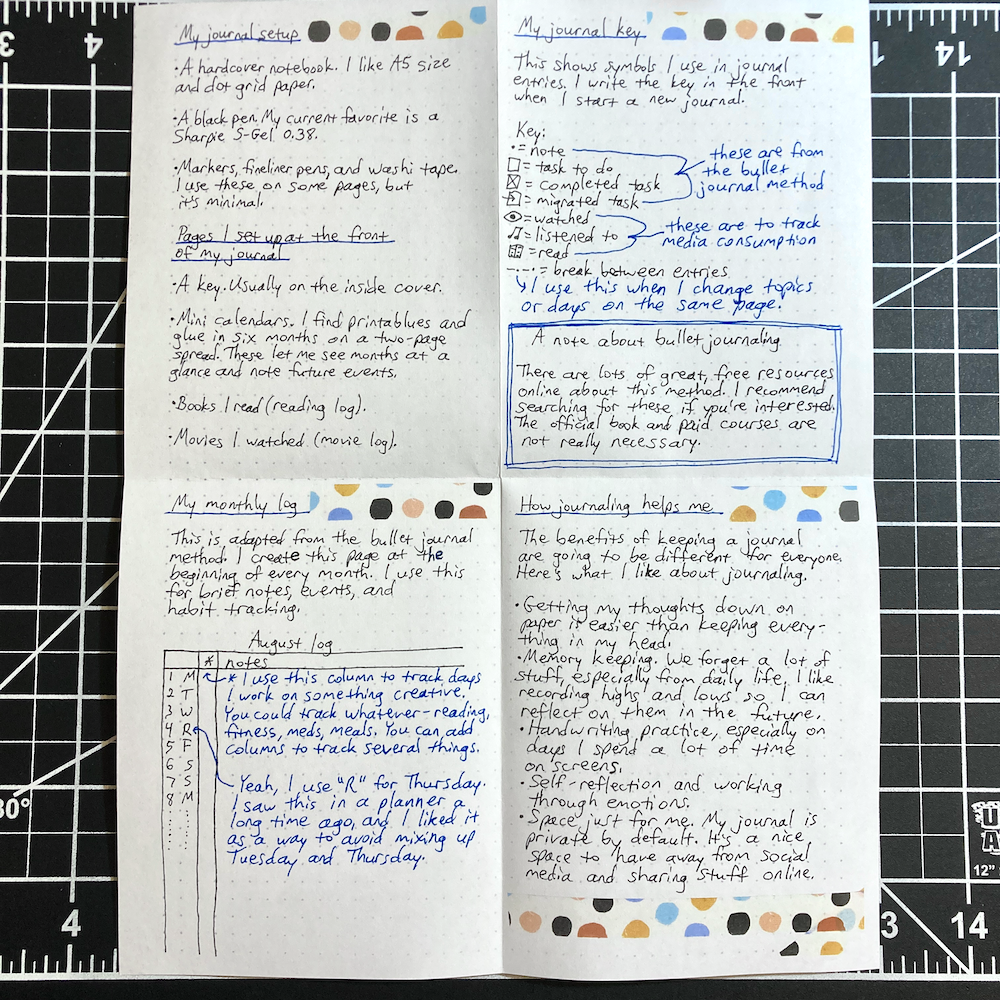 My journal setup
·A hardcover notebook. I like A5 size
and dot grid paper.
·A black pen. My current favorite is a
Sharpie S-Gel 0.38.
·Markers, fineliner pens, and washi tape.
I use these on some pages, but
it's minimal.
Pages I set up at the front
of my journal
·A key. Usually on the inside cover.
·Mini calendars. I find printablues and
glue in six months on a two-page
spread. These let me see months at a
glance and note future events.
·Books I read (reading log).
·Movies I watched (movie log).
My journal key
This shows symbols I use in journal
entries. I write the key in the front
when I start a new journal.
Key:
· = note
☐ = task to do
☒ = completed task
> = migrated task
these are from
the bullet
journal method
= watched
♫ = listened to
= read
these are to track
media consumption
-·-· = break between entries
↳ I use this when I change topics
or days on the same page.
A note about bullet journaling
There are lots of great, free resources
online about this method. I recommend
searching for these if you're interested.
The official book and paid courses are
not really necessary.
My monthly log
This is adapted from the bullet journal
method. I create this page at the
beginning of every month. I use this
for brief notes, events, and
habit tracking.
August log
* notes
1 M
2 T
3 W
4 R
5 F
6 S
7 S
8 M
* I use this column to track days
I work on something creative.
You could track whatever-reading,
fitness, meds, meals. You can add
columns to track several things.
Yeah, I use "R" for Thursday.
I saw this in a planner a
long time ago, and I liked it
as a way to avoid mixing up
Tuesday and Thursday.
How journaling helps me
The benefits of keeping a journal
are going to be different for everyone.
Here's what I like about journaling.
·Getting my thoughts down on
paper is easier than keeping every-
thing in my head.
·Memory keeping. We forget a lot of
stuff, especially from daily life. I like
recording highs and lows so I can
reflect on them in the future.
·Handwriting practice, especially on
days I spend a lot of time
on screens.
·Self-reflection and working
through emotions.
·Space just for me. My journal is
private by default. It's a nice
space to have away from social
media and sharing stuff online.
3
4
1
14
30°
12"
4
3
14